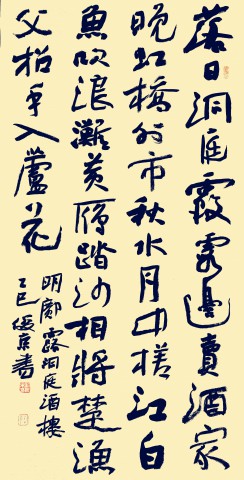 落日洞庭霞霞邊賣酒家
晚虹橋外市秋水月中槎江白
魚吹浪灘黃雁踏沙相將楚漁
父招手入蘆花
明鄺露洞庭酒樓
乙巳 京書